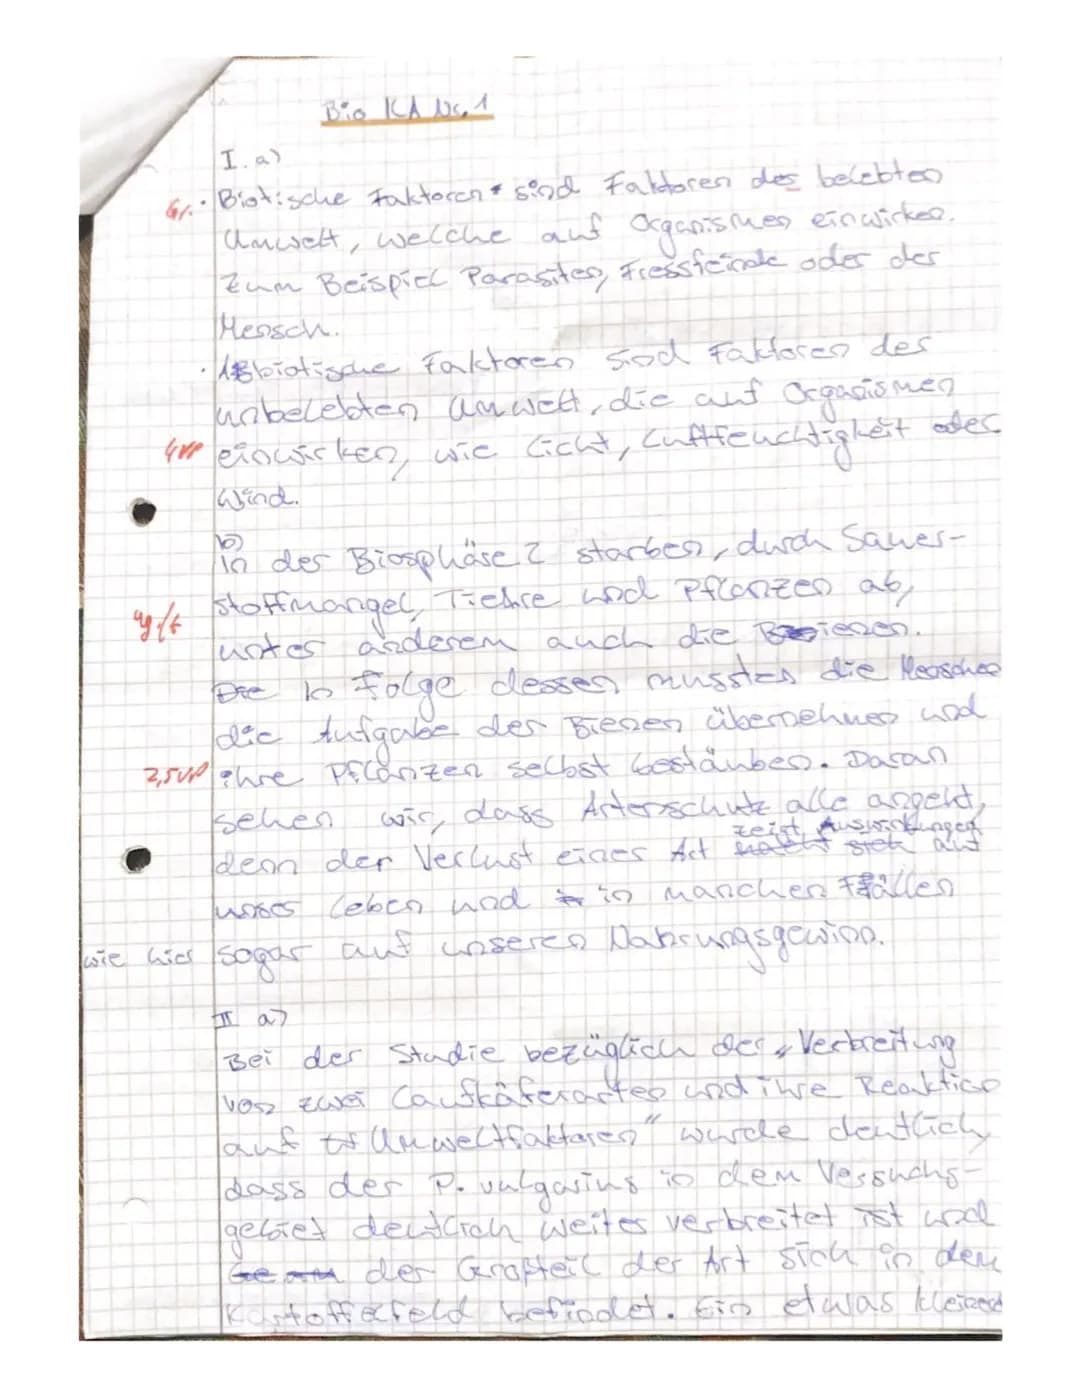 Bio KA Nr. 1
I. a)
• Biotische Faktoren sind Faktoren der belebten
Umwelt, welche auf Organismen einwirken.
Zum Beispiel Parasiten, Fressfeinde oder der
Mensch.
• Abiotische Faktoren sind Faktoren der
unbelebten Umwelt, die auf Organismen
4VP einwirken, wie Licht, Luftfeuchtigkeit oder
Wind.
b)
In der Biosphäre 2 starben, durch Sauer-
stoffmangel, Tiehre und Pflanzen ab,
unter anderem auch die Bienen.
In Folge dessen mussten die Menschen
die Aufgabe der Bienen übernehmen und
2,5VP ihre Pflanzen selbst bestäuben. Daran
sehen wir, dass Artenschutz alle angeht,
zeigt Auswirkungen
denn der Verlust einer Art auf
unser Leben und in manchen Fällen
wie hier sogar auf unseren Nahrungsgewinn.
II a)
Bei der Studie bezüglich der „Verbreitung
von zwei Laufkäferarten und ihre Reaktion
auf Umweltfaktoren" wurde deutlich,
dass der P. vulgarius in dem Versuchs-
gebiet deutlich weiter verbreitet ist und
der Großteil der Art sich in dem
Kartoffelfeld befindet. Ein etwas kleinerer